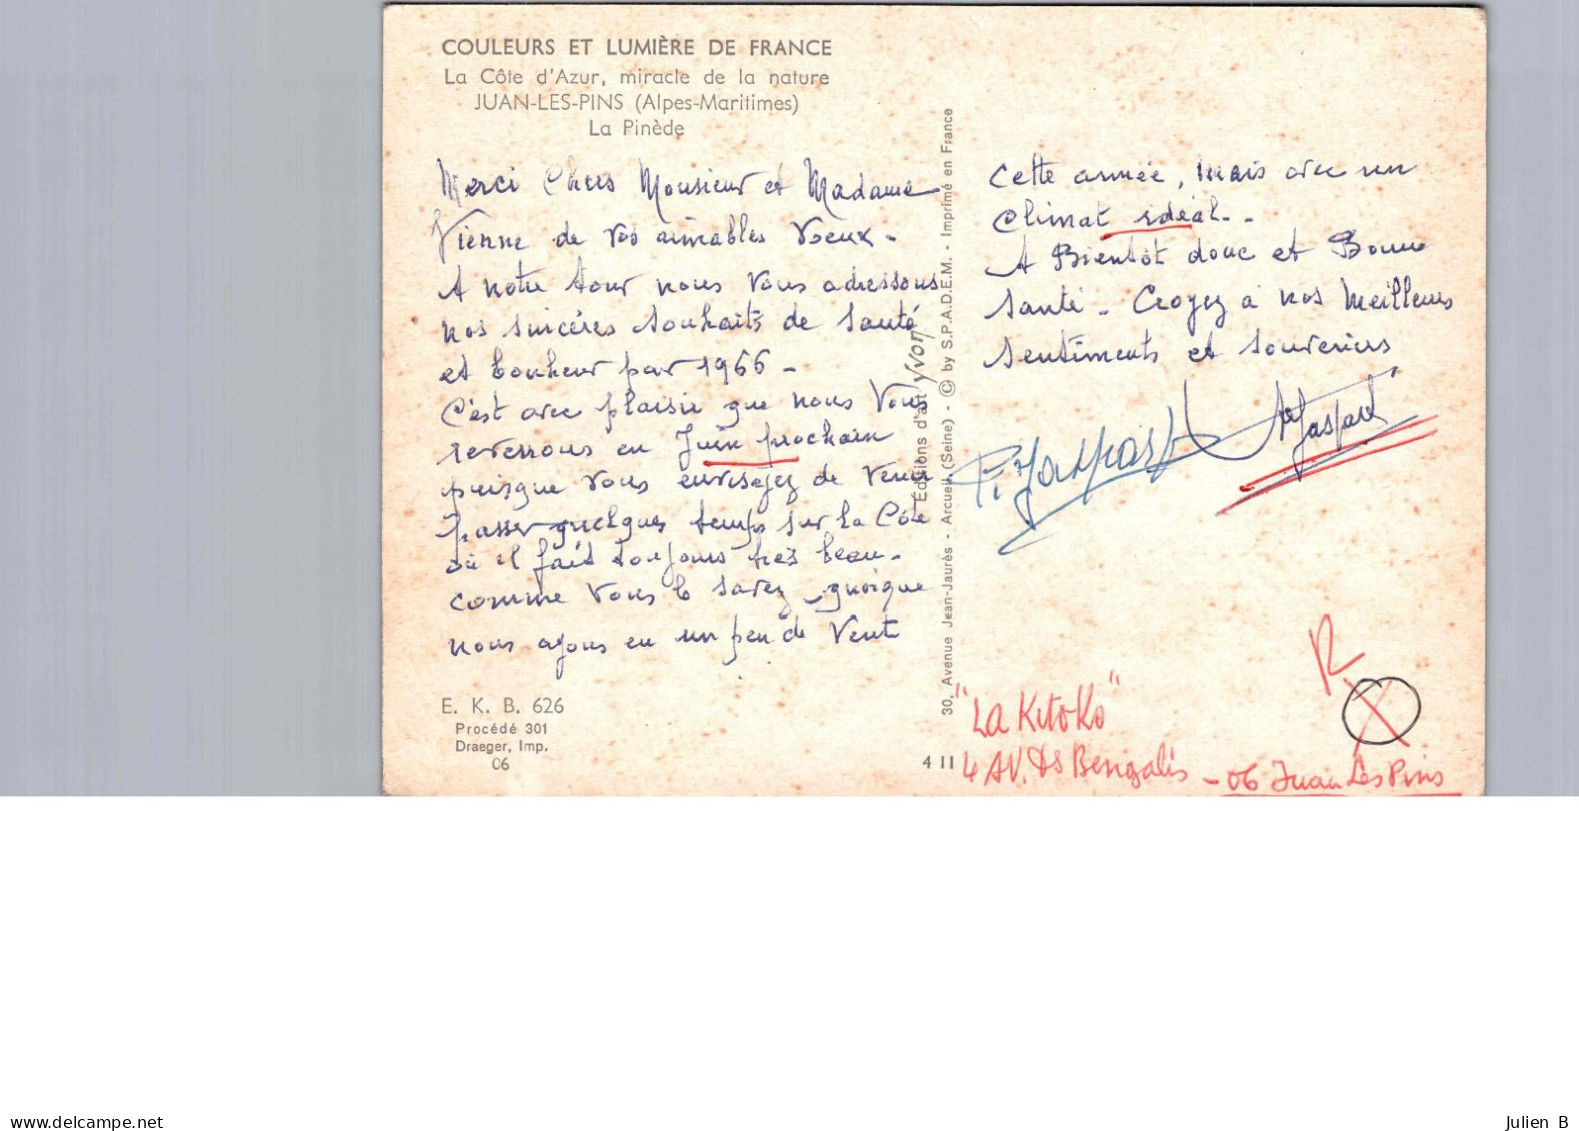 COULEURS ET LUMIÈRE DE FRANCE
La Côte d'Azur, miracle de la nature
JUAN-LES-PINS (Alpes-Maritimes)
La Pinède
Merci Chers Monsieur et Madame
Vienne de vos aimables Voeux -
A notre tour nous vous adressons
nos sincères souhaits de santé
et bonheur par 1966 -
C'est avec plaisir que nous Vous
reverrons en Juin prochain
puisque vous envisagez de venir
passer quelques temps sur la Côte
où il fait toujours très beau -
comme vous le savez, quoique
nous ayons eu un peu de Vent
E. K. B. 626
Procédé 301
Draeger, Imp.
06
30, Avenue Jean-Jaurès - Arcueil (Seine) - © by S.P.A.D.E.M. - Imprimé en France
Éditions d'art Yvon
4 11
Cette année, mais avec un
Climat idéal - -
A Bientôt donc et Bonne
santé - Croyez à nos Meilleurs
sentiments et souvenirs
R
"La Kitoko"
4 AV. Ds Bengalis - 06 Juan Les Pins
delcampe.net
Julien B